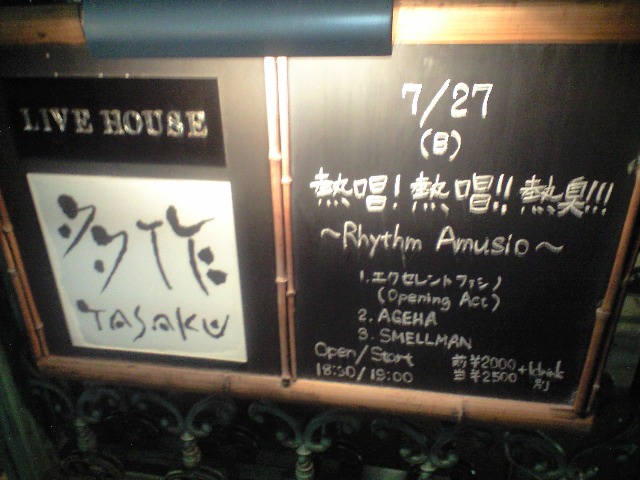 LIVE HOUSE
多作
TASAKU
7/27
(日)
熱唱! 熱唱!! 熱臭!!!
~Rhythm Amusio~
1. エクセレントファシノ
(Opening Act)
2. AGEHA
3. SMELLMAN
Open/Start
18:30/19:00
前¥2000
当¥2500
+1drink
別